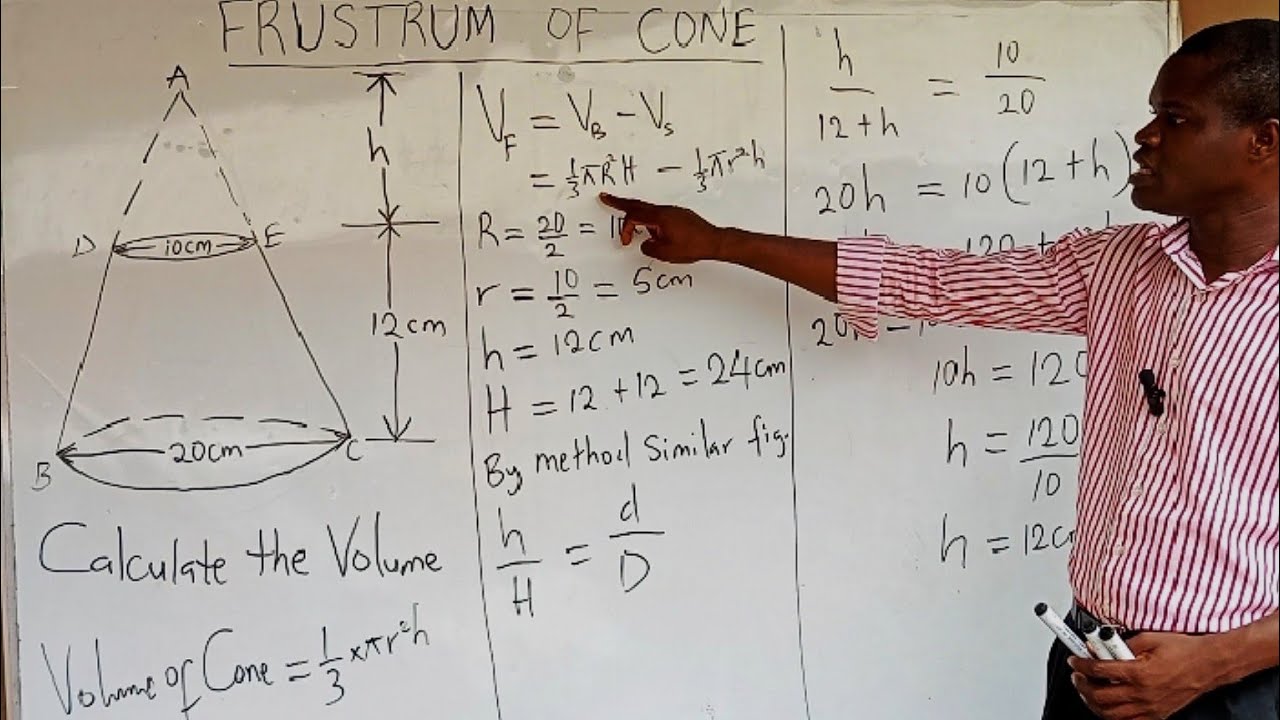 FRUSTRUM OF CONE
A
h
D
10cm
E
12cm
B
20cm
C
Calculate the Volume
Volume of Cone = 1/3 × πr²h
V_F = V_B - V_s
= 1/3 πR²H - 1/3 πr²h
R = 20/2 =
r = 10/2 = 5cm
h = 12cm
H = 12 + 12 = 24cm
By method Similar fig.
h/H = d/D
h/12+h = 10/20
20h = 10(12+h)
10h = 120
h = 120/10
h = 12c